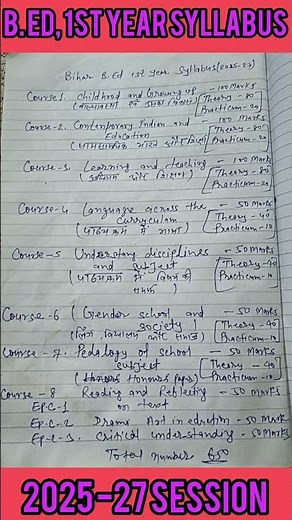 B.ED, 1ST YEAR SYLLABUS
Bihar B.Ed 1st Year Syllabus (2025-27)
Course 1. Childhood and Growing up - 100 Marks
(बाल्यावस्था एवं उसका विकास) Theory - 80
Practicum - 20
Course-2. Contemporary Indian and - 100 Marks
Education Theory - 80
(समकालीन भारत और शिक्षा) Practicum - 20
Course-3. Learning and teaching - 100 Marks
(अधिगम और शिक्षण) Theory - 80
Practicum - 20
Course-4 Language across the - 50 Marks
Curriculam Theory - 40
(पाठ्यक्रम में भाषा) Practicum - 10
Course-5 Understang disciplines - 50 Marks
and subject Theory - 40
(पाठ्यक्रम में विषयों की Practicum - 10
समझ
Course-6 (Gender school and - 50 Marks
society) Theory - 40
(लिंग, विद्यालय और समाज Practicum - 10
Course-7. Pedology of school - 50 Marks
subject Theory - 40
(Honours Honours paper) Practicum - 10
Course-8 Reading and Reflecting - 50 Marks
EP.C-1 on text
EP.C-2 Drama Art in edretion - 50 Marks
EP-C-3. Critical understanding - 50 Marks
Total number 650
2025-27 SESSION